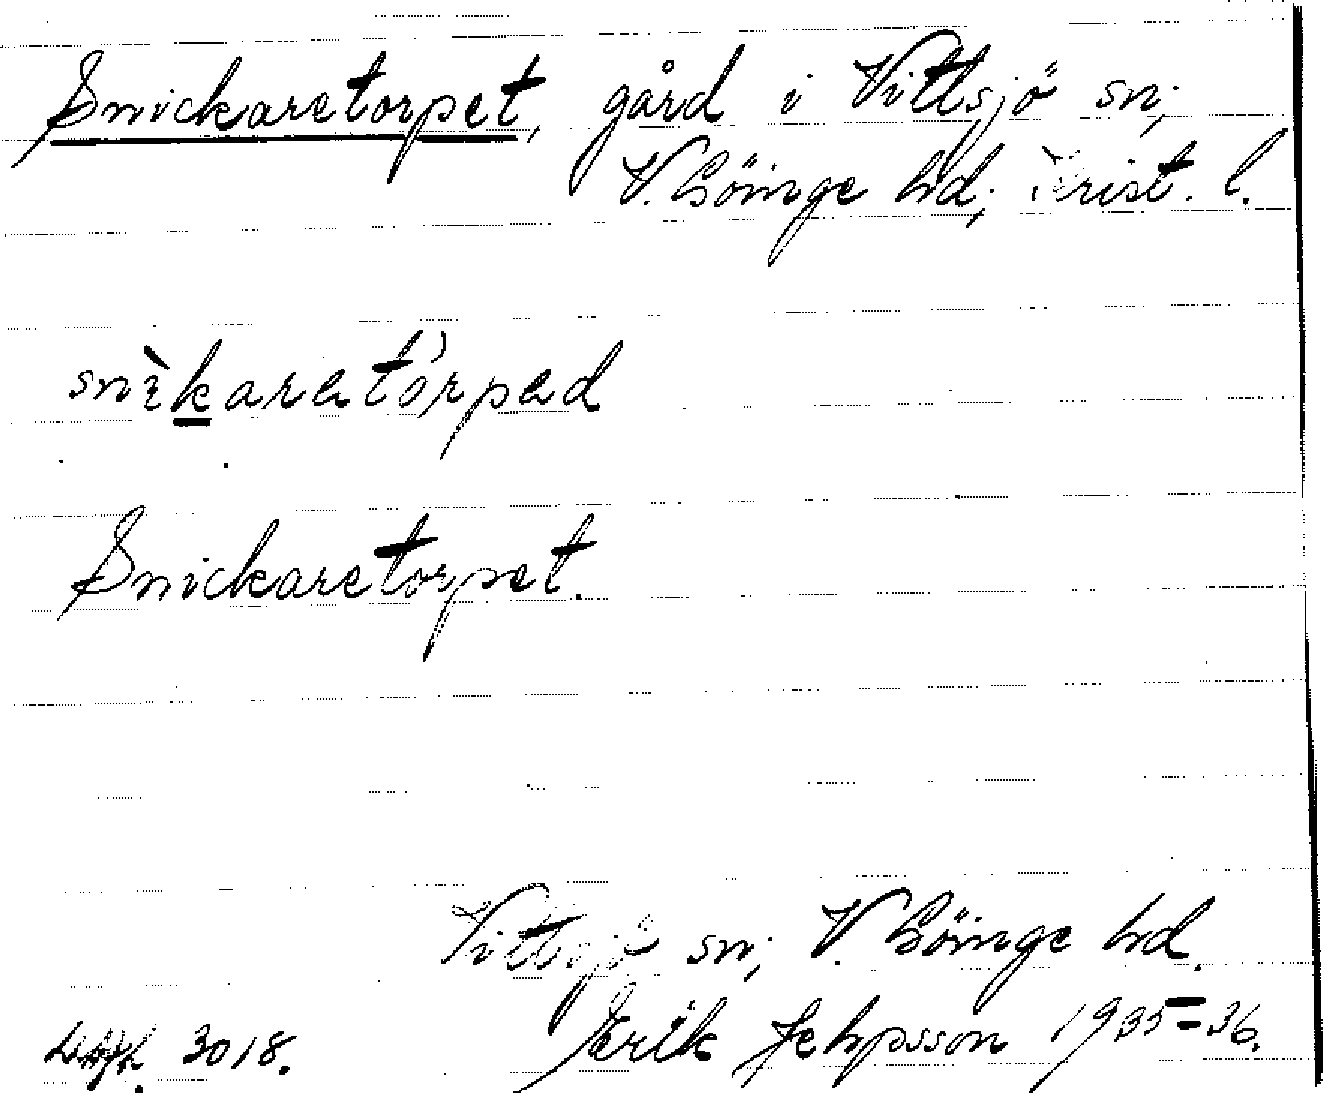 Snickaretorpet, gård i Vittsjö sn;
V. Göinge hd; Krist. l.
snìkaretórped
Snickaretorpet.
Vittsjö sn; V. Göinge hd.
3018.
Erik Jehpsson 1935=36.